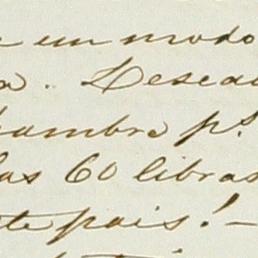 e un modo
a. Desea
hambre p.s
las 60 libras
te pais! —